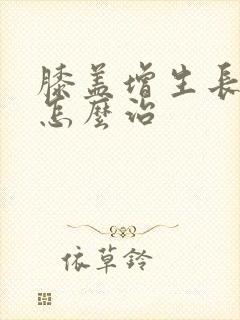 膝盖增生長
怎麼治
依草鈴